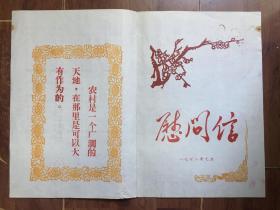 慰问信
农村是一个广阔的
天地，在那里是可以大
有作为的。